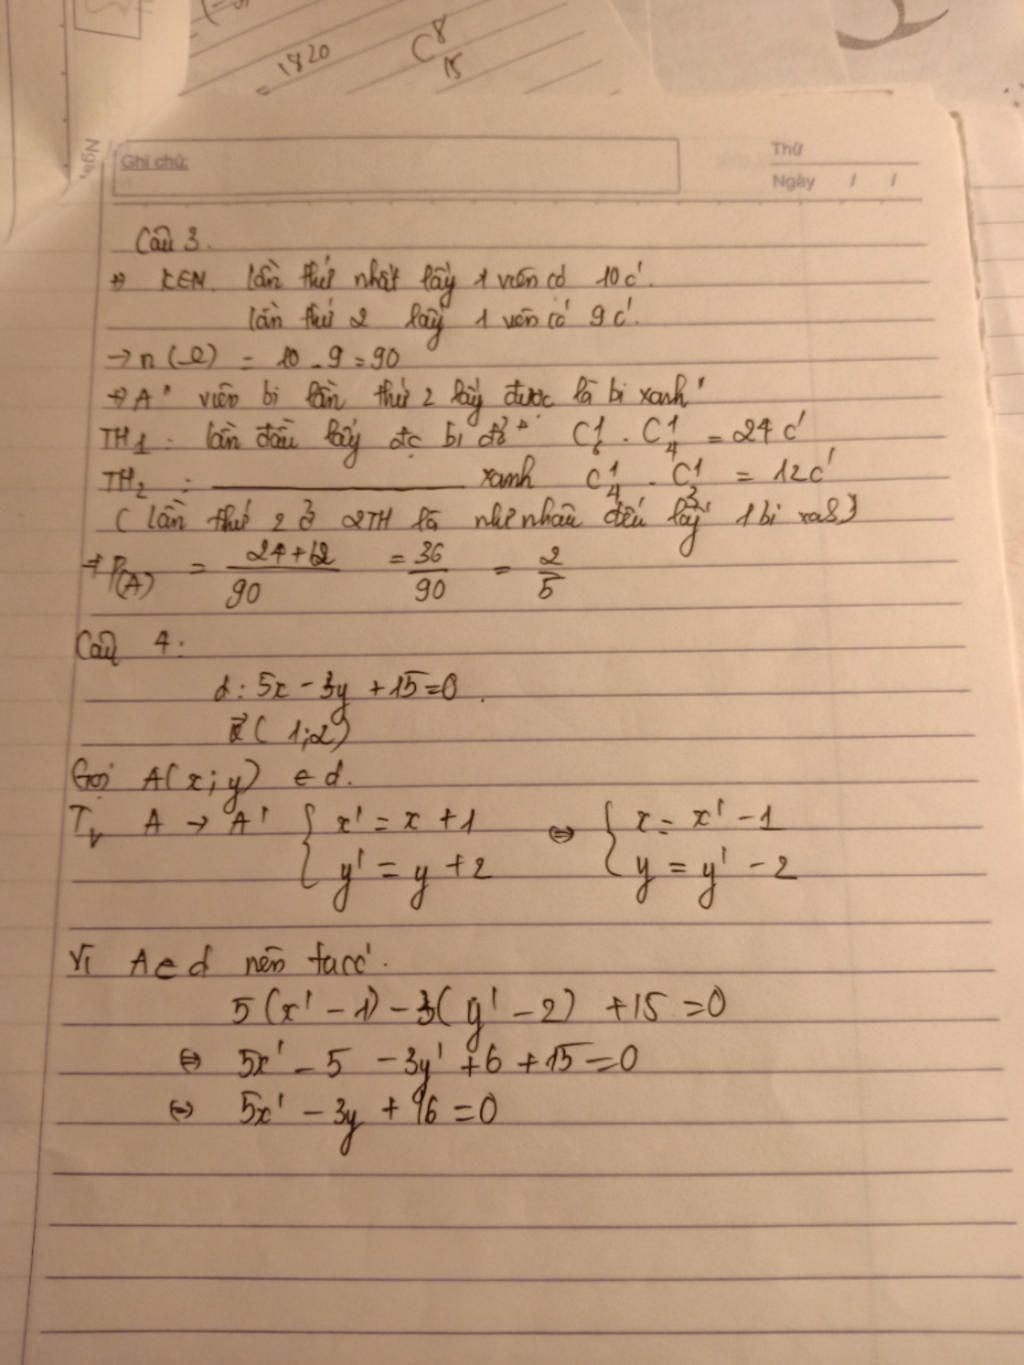 = 1820
C⁸₁₅
Ngày
Ghi chú:
Thứ
Ngày / /
Câu 3.
lần thứ nhất lấy 1 viên có 10 c'.
lần thứ 2 lấy 1 viên có 9 c'.
→ n(Ω) = 10 . 9 = 90
→ A " viên bi lần thứ 2 lấy được là bi xanh "
TH1 : lần đầu lấy đc bi đỏ C¹₆ . C¹₄ = 24 c'
TH2 : ———— xanh C¹₄ . C¹₃ = 12 c'
( lần thứ 2 ở 2TH là như nhau đều lấy 1 bi )
→ P(A) = 24+12/90 = 36/90 = 2/5
Câu 4 :
d : 5x - 3y + 15 = 0.
( 1; 2)
Gọi A(x; y) ∈ d.
Tv A → A' { x' = x + 1 ⇔ { x = x' - 1
y' = y + 2 y = y' - 2
Vì A ∈ d nên ta có.
5(x' - 1) - 3( y' - 2) + 15 = 0
⇔ 5x' - 5 - 3y' + 6 + 15 = 0
⇔ 5x' - 3y + 96 = 0